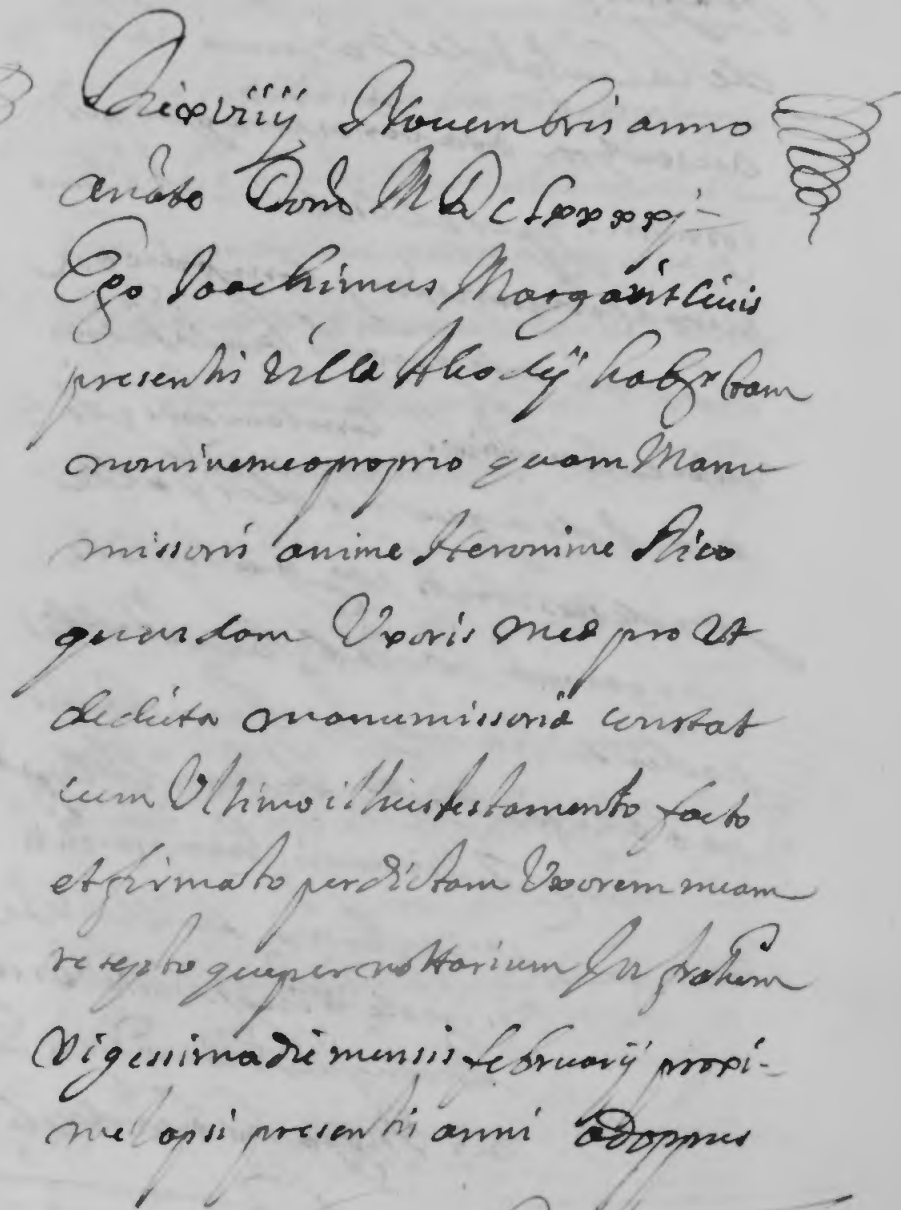 Die xviiij Nouembris anno
a nãte Domõ M D c Lxxxxj
Ego Joachimus Margarit Ciuis
presentis Villa Alcodij habitam
nomine meo proprio quam Manu
missoris anime Hieronime Rico
quondam Uxoris mee pro ut
de dicta manumissoria constat
cum Ultimo illius testamento facto
et firmato per dictam Uxorem meam
recepto que per nottarium Infratum
Vigessima die mensis februarij proxi-
me lapsi presentis anni